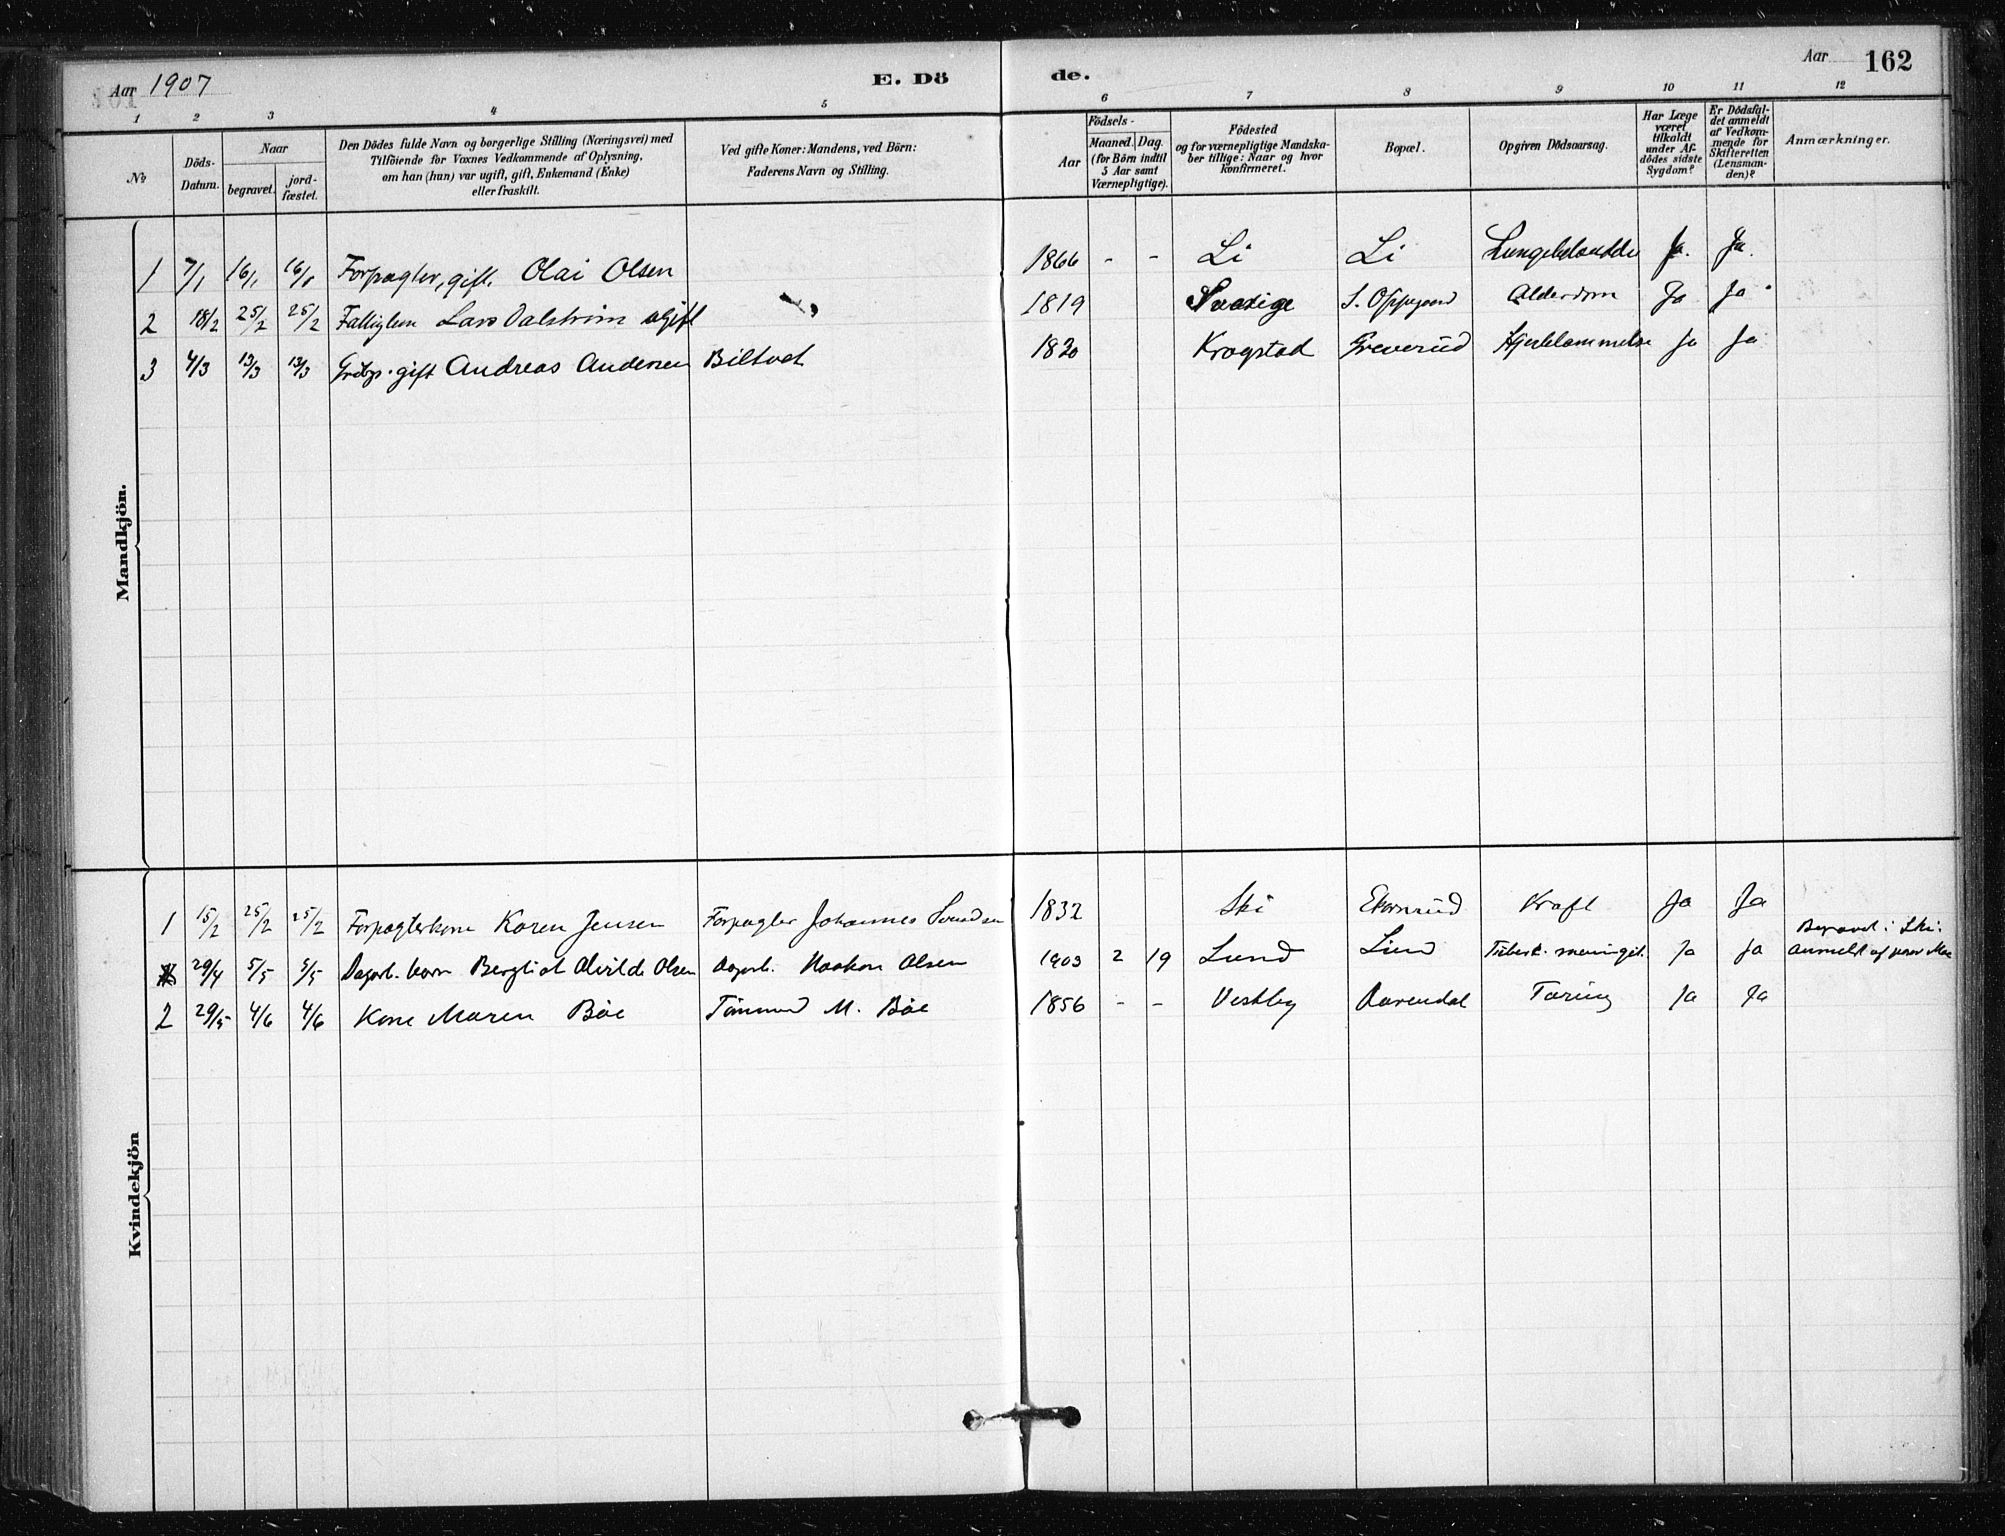 Aar 1907
E. Dö de.
Aar 162
1 2 3 4 5 6 7 8 9 10 11 12
No
Döds-Datum.
Naar
begravet.
jord-fæstet.
Den Dödes fulde Navn og borgerlige Stilling (Næringsvei) med
Tilföiende for Voxnes Vedkommende af Oplysning,
om han (hun) var ugift, gift, Enkemand (Enke)
eller fraskilt.
Ved gifte Koner: Mandens, ved Börn:
Faderens Navn og Stilling.
Födsels-
Aar
Maaned. Dag.
(for Börn indtil
5 Aar samt
Værnepligtige).
Födested
og for værnepligtige Mandska-
ber tillige: Naar og hvor
konfirmeret.
Bopæl.
Opgiven Dödsaarsag.
Har Læge
været
tilkaldt
under Af-
dödes sidste
Sygdom?
Er Dödsfal-
det anmeldt
af Vedkom-
mende for
Skifteretten
(Lensman-
den)?
Anmærkninger.
Mandkjön.
1 7/1 16/1 16/1 Forpagter, gift, Olai Olsen 1866 - - Li Li Ja. Ja.
2 18/2 25/2 25/2 Fattiglem Lars Dalström ugift 1819 S. Oppegaard Alderdom Ja Ja
3 4/3 13/3 13/3 gift Andreas Andersen Biltvet 1820 Krogstad Greverud Ja Ja
Kvindekjön
1 15/2 25/2 25/2 Forpagterkone Karen Jensen Forpagter Johannes Svendsen 1832 Ski Ekornrud Kræft Ja Ja
Begravet i Ski.
29/4 5/5 5/5 Dagarb. barn Bergliot Alvilde Olsen Dagarb. Haakon Olsen 1903 2 19 Lund Lund Tuberk. meningit. Ja Ja Anmeldt af
2 29/5 4/6 4/6 Kone Maren Böe Tömmerm. M. Böe 1856 - - Vestby Tæring Ja Ja